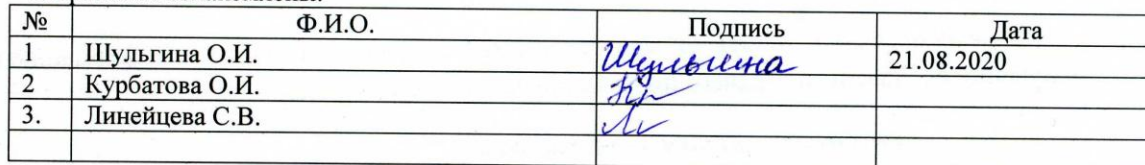 № Ф.И.О. Подпись Дата
1 Шульгина О.И. Шульгина 21.08.2020
2 Курбатова О.И.
3. Линейцева С.В.